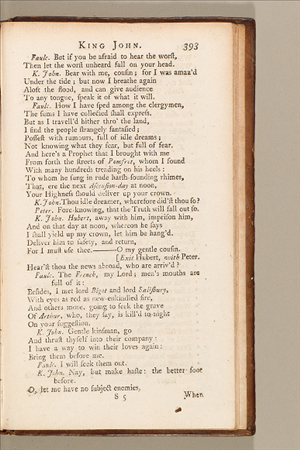 KING JOHN. 393
Faulc. But if you be afraid to hear the worst,
Then let the worst unheard fall on your head.
K. John. Bear with me, cousin; for I was amaz'd
Under the tide; but now I breathe again
Aloft the flood, and can give audience
To any tongue, speak it of what it will.
Faulc. How I have sped among the clergymen,
The sums I have collected shall express.
But as I travell'd hither thro' the land,
I find the people strangely fantasied;
Possest with rumours, full of idle dreams;
Not knowing what they fear, but full of fear.
And here's a Prophet that I brought with me
From forth the streets of Pomfret, whom I found
With many hundreds treading on his heels:
To whom he sung in rude harsh-sounding rhimes,
That, ere the next Ascension-day at noon,
Your Highness should deliver up your crown.
K. John. Thou idle dreamer, wherefore did'st thou so?
Peter. Fore-knowing, that the Truth will fall out so.
K. John. Hubert, away with him, imprison him,
And on that day at noon, whereon he says
I shall yield up my crown, let him be hang'd.
Deliver him to safety, and return,
For I must use thee.——O my gentle cousin,
[Exit Hubert, with Peter.
Hear'st thou the news abroad, who are arriv'd?
Faulc. The French, my Lord; men's mouths are
full of it:
Besides, I met lord Bigot and lord Salisbury,
With eyes as red as new-enkindled fire,
And others more, going to seek the grave
Of Arthur, who, they say, is kill'd to night
On your suggestion.
K. John. Gentle kinsman, go
And thrust thyself into their company:
I have a way to win their loves again:
Bring them before me.
Faulc. I will seek them out.
K. John. Nay, but make haste: the better foot
before.
O, let me have no subject enemies,
S 5 When